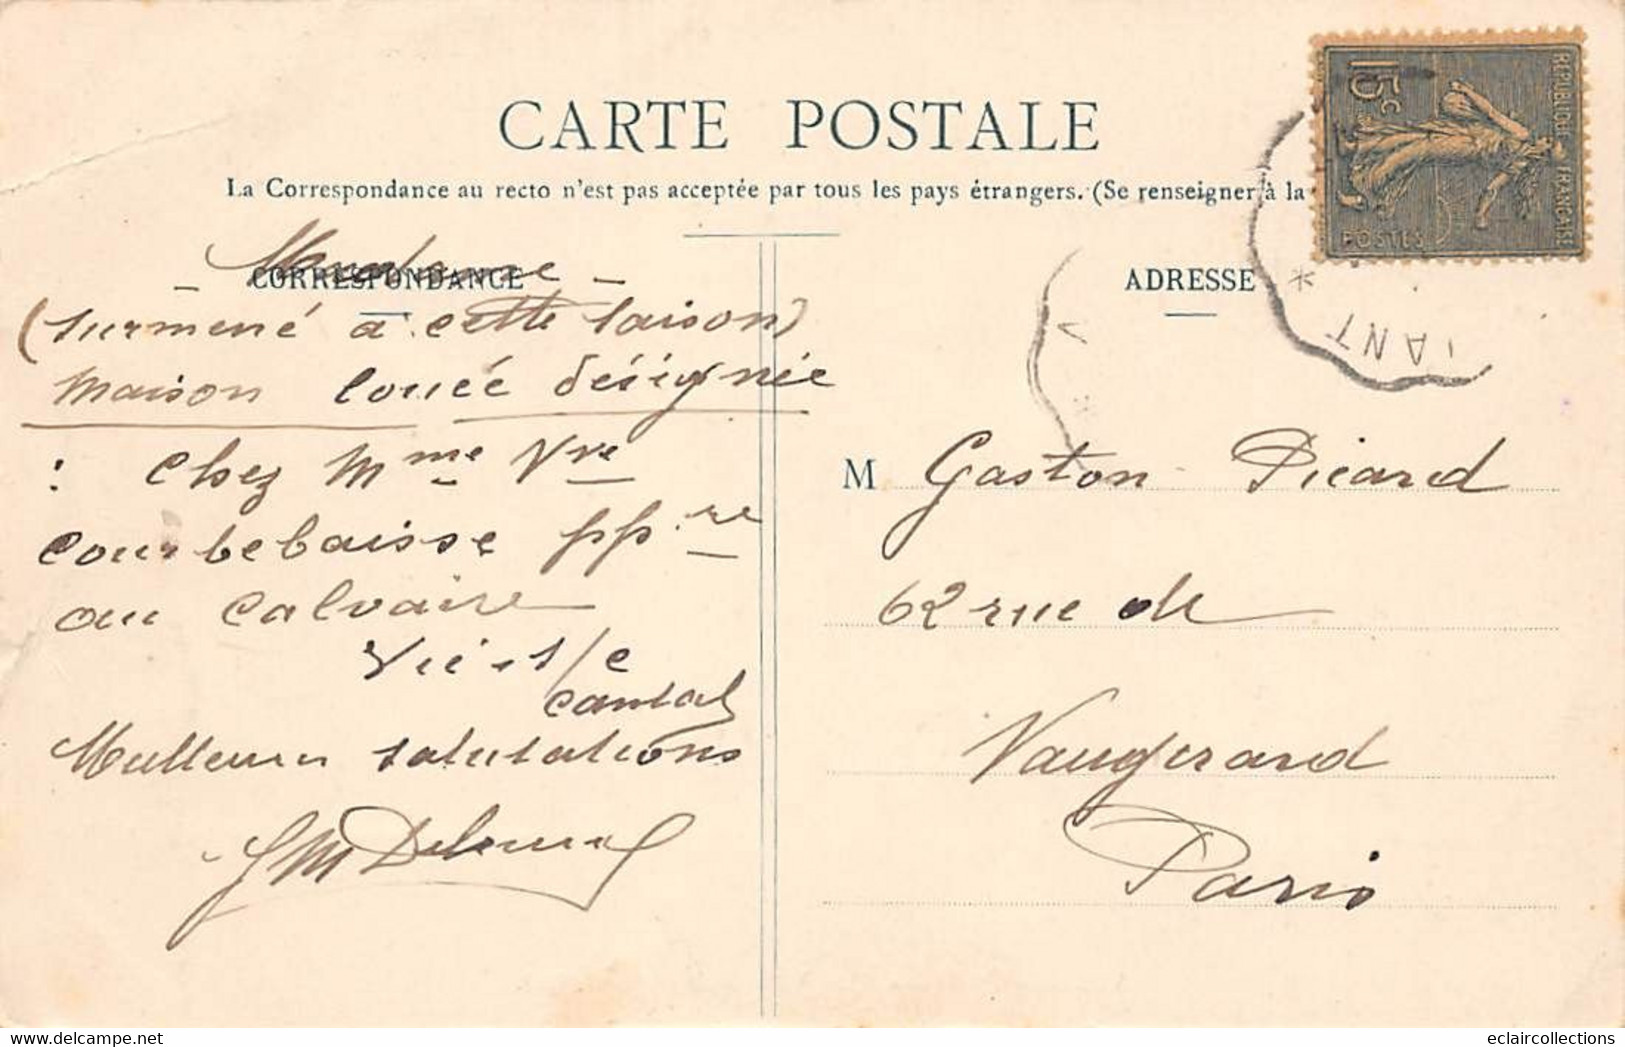 CARTE POSTALE
La Correspondance au recto n'est pas acceptée par tous les pays étrangers. (Se renseigner à la
REPUBLIQUE FRANCAISE
15c
POSTES
ANT
CORRESPONDANCE
(surmené à cette saison)
maison louée désignée
: chez Mme Vve
Courbebaisse pp.re
au Calvaire
Vic-s/c
Cantal
Meilleures salutations
ADRESSE
M Gaston Picard
62 rue de
Vaugirard
Paris
eclaircollections